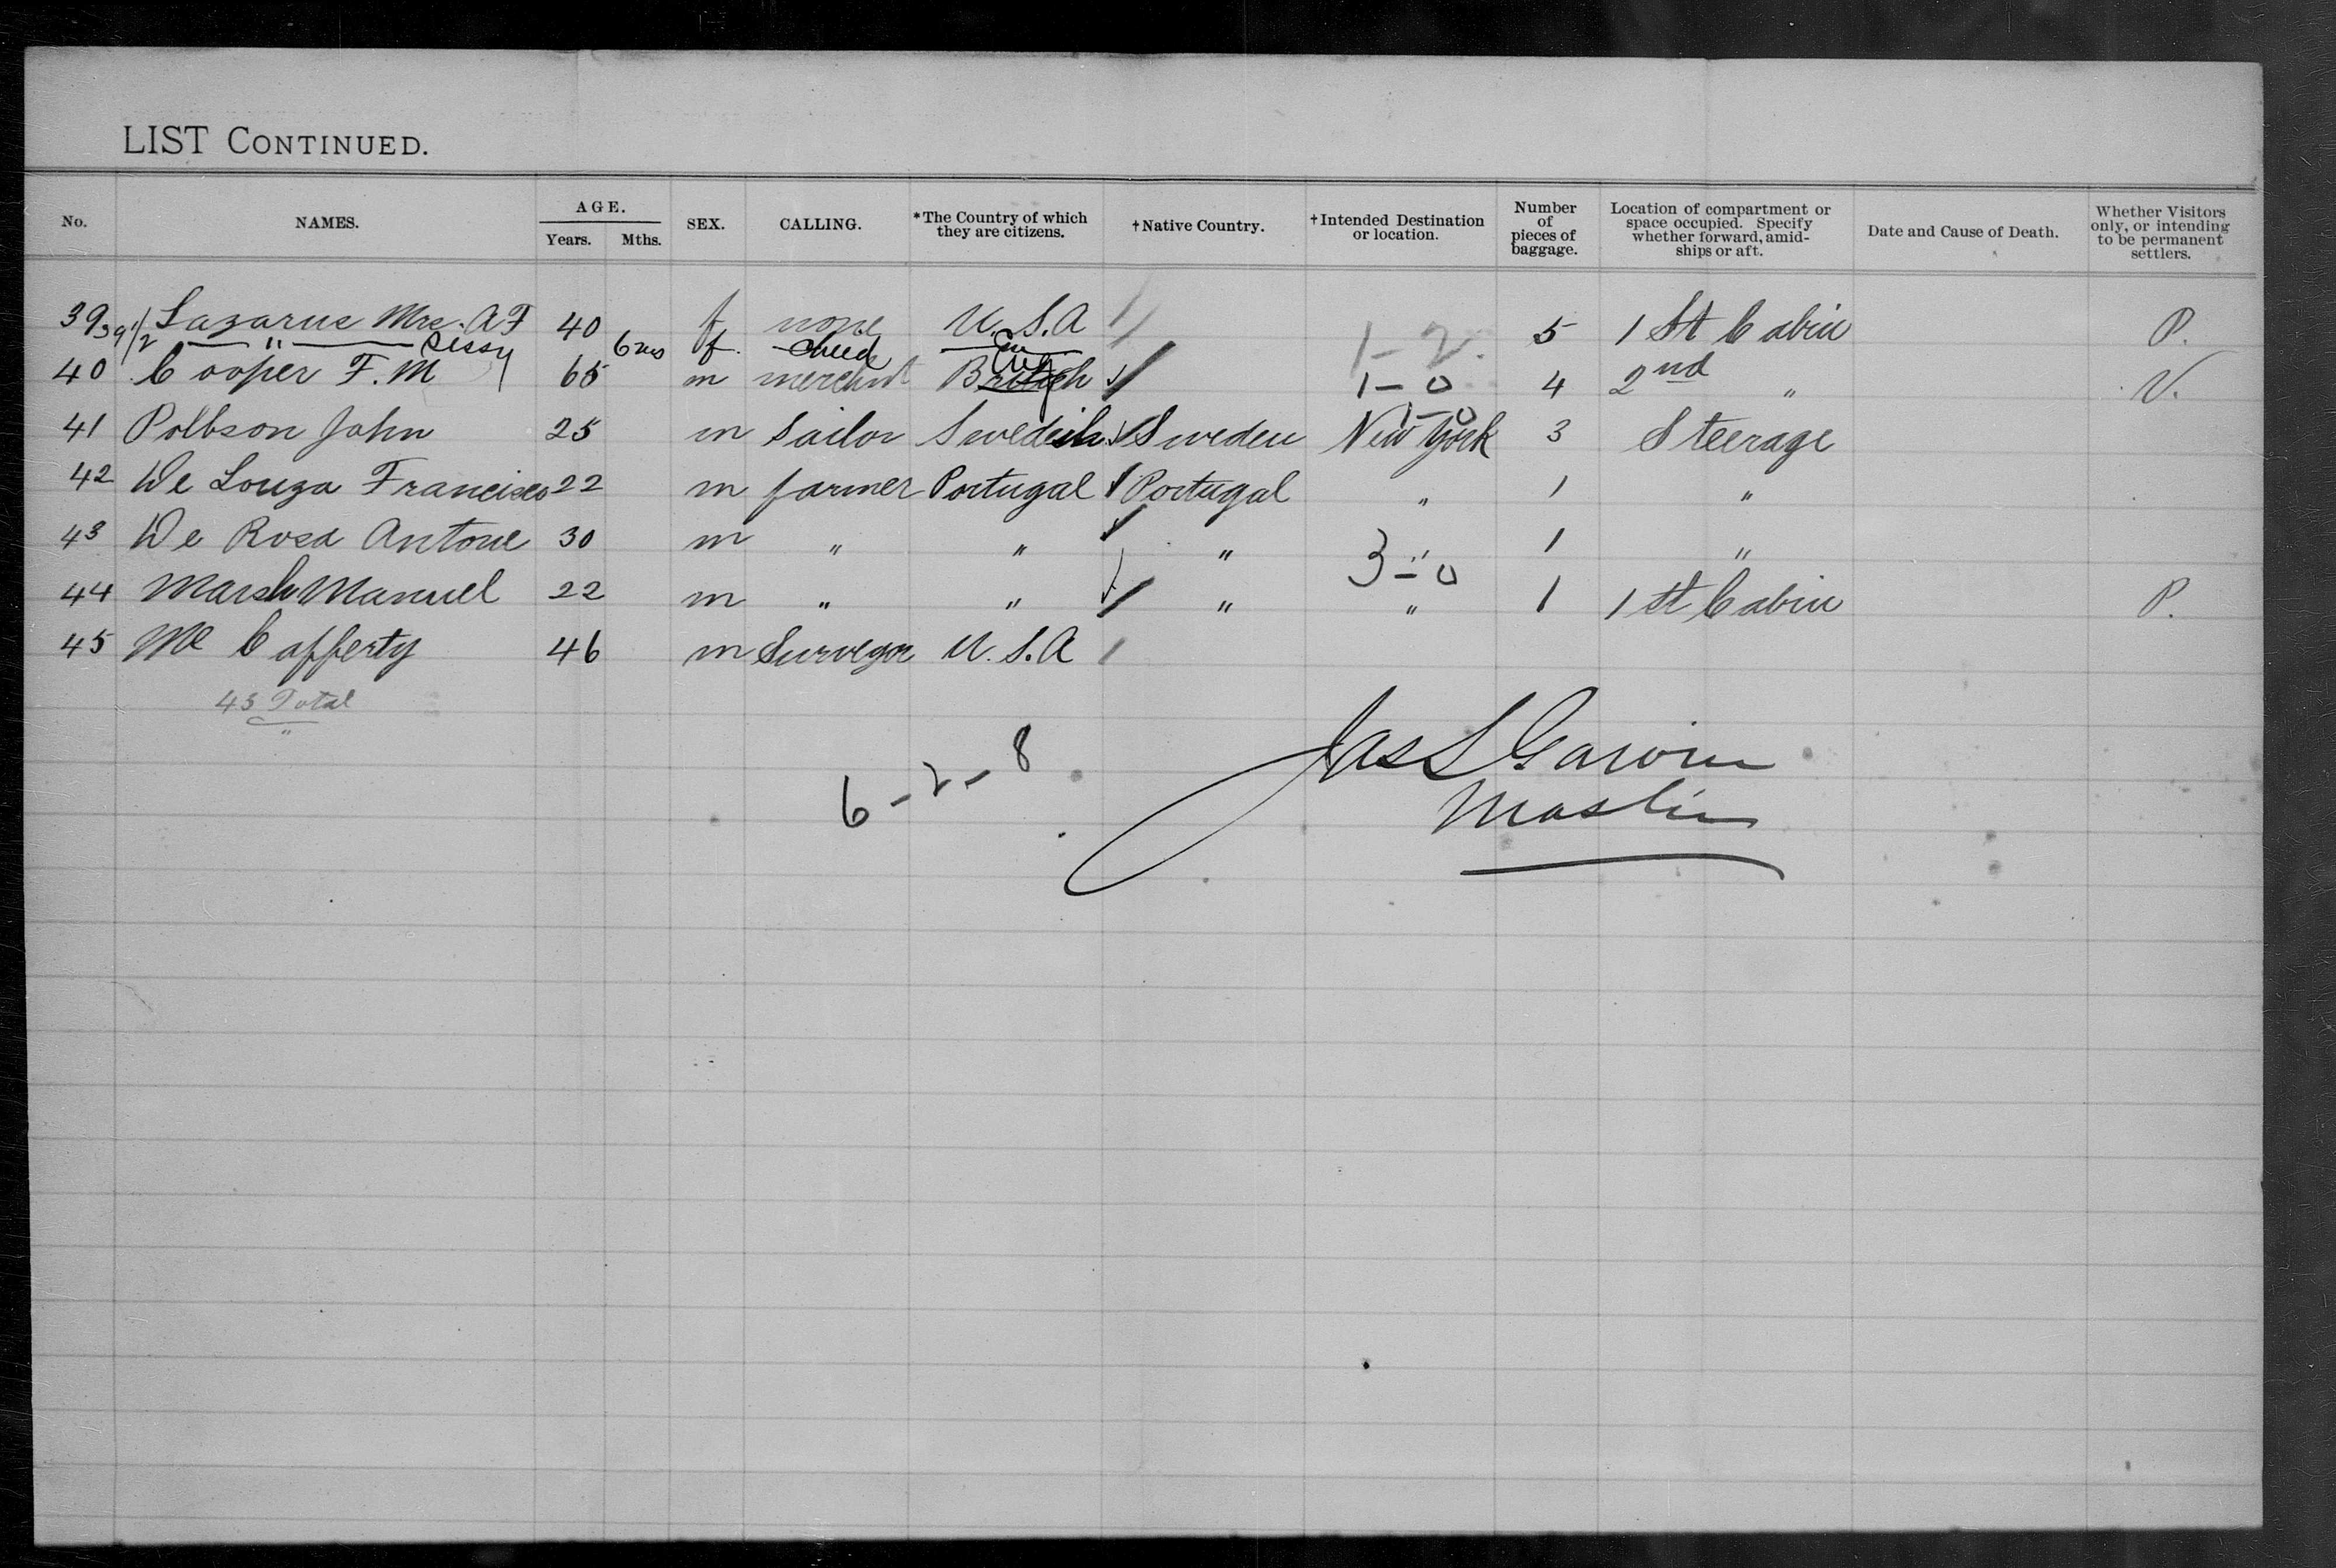 LIST CONTINUED.
No. NAMES. AGE. Years. Mths. SEX. CALLING. *The Country of which they are citizens. †Native Country. †Intended Destination or location. Number of pieces of baggage. Location of compartment or space occupied. Specify whether forward, amidships or aft. Date and Cause of Death. Whether Visitors only, or intending to be permanent settlers.
39 Lazarus Mrs. A F 40 f none U.S.A 1-2. 5 1 St Cabin P.
39 1/2 " Sissy 6 ms f. child
40 Cooper F. M 65 m merchant British 1-0 4 2nd " V.
1-0
41 John 25 m Sailor Swedish Sweden New York 3 Steerage
42 De Souza Francisco 22 m farmer Portugal Portugal " 1 "
43 De Rosa Antone 30 m " " " " 1 "
3-0
44 Marsh Manuel 22 m " " " " 1 1 St Cabin P.
45 Mc Cafferty 46 m Surveyor U.S.A
45 Total
"
6-2-8
Jas L